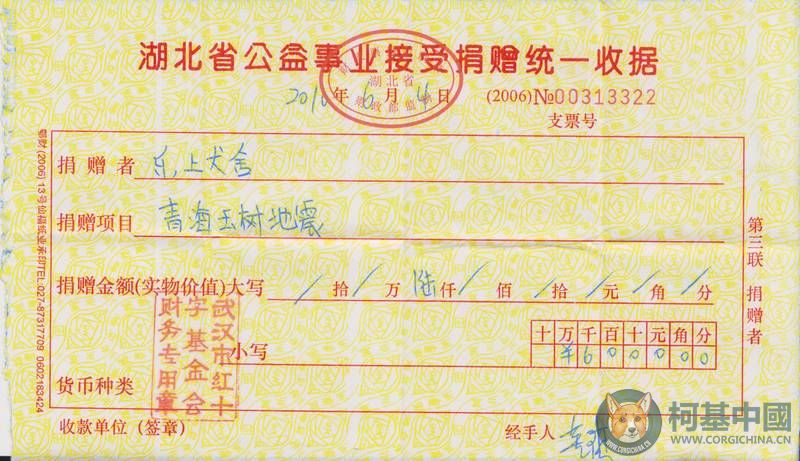 湖北省公益事业接受捐赠统一收据
湖北省
2010年6月4日
(2006) №00313322
支票号
捐赠者 乐上犬舍
捐赠项目 青海玉树地震
捐赠金额(实物价值)大写 / 拾 / 万 陆 仟 / 佰 / 拾 / 元 / 角 / 分
小写
十万千百十元角分
¥600000
货币种类
武汉市红十
字基金会
财务专用章
收款单位 (签章)
经手人
第三联 捐赠者
鄂财 (2006) 13号仙福纸业承印TEL:027-87317709 0602183424
柯基中國
WWW.CORGICHINA.CN